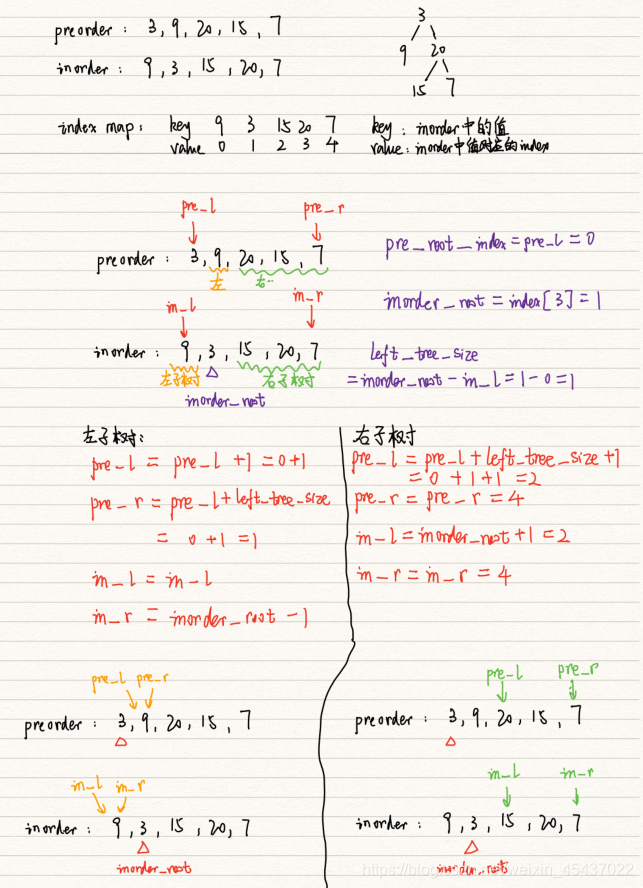 preorder : 3, 9, 20, 15, 7
inorder : 9, 3, 15, 20, 7
3
9 20
15 7
index map : key 9 3 15 20 7
value 0 1 2 3 4
key : inorder中的值
value : inorder中值对应的index
pre_l pre_r
preorder : 3, 9, 20, 15, 7
左 右
in_l in_r
inorder : 9, 3, 15, 20, 7
左子树 右子树
inorder_root
pre_root_index = pre_l = 0
inorder_root = index[3] = 1
left_tree_size
= inorder_root - in_l = 1 - 0 = 1
左子树:
pre_l = pre_l + 1 = 0+1
pre_r = pre_l + left_tree_size
= 0 + 1 = 1
in_l = in_l
in_r = inorder_root - 1
右子树
pre_l = pre_l + left_tree_size + 1
= 0 + 1 + 1 = 2
pre_r = pre_r = 4
in_l = inorder_root + 1 = 2
in_r = in_r = 4
pre_l pre_r
preorder : 3, 9, 20, 15, 7
in_l in_r
inorder : 9, 3, 15, 20, 7
inorder_root
pre_l pre_r
preorder : 3, 9, 20, 15, 7
in_l in_r
inorder : 9, 3, 15, 20, 7
inorder_root
weixin_45437022